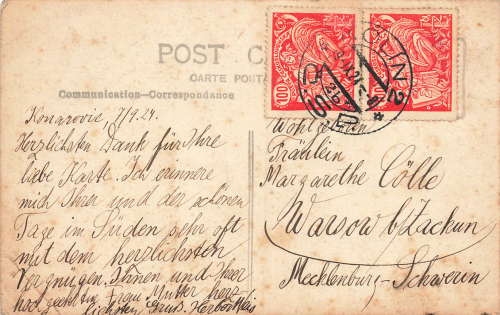 POST CA
CARTE POSTA
Communication—Correspondance
100
KOLÍN 2
7/9.24.
Herzlichsten Dank für Ihre
liebe Karte. Ich erinnere
mich Ihrer und der schönen
Tage im Süden sehr oft
mit dem herzlichsten
Vergnügen. Ihnen und Ihrer
Frau Mutter herz-
lichsten Gruß.
Wohlgeboren
Fräulein
Margarethe Cölle
Warsow b/Zachun
Mecklenburg-Schwerin